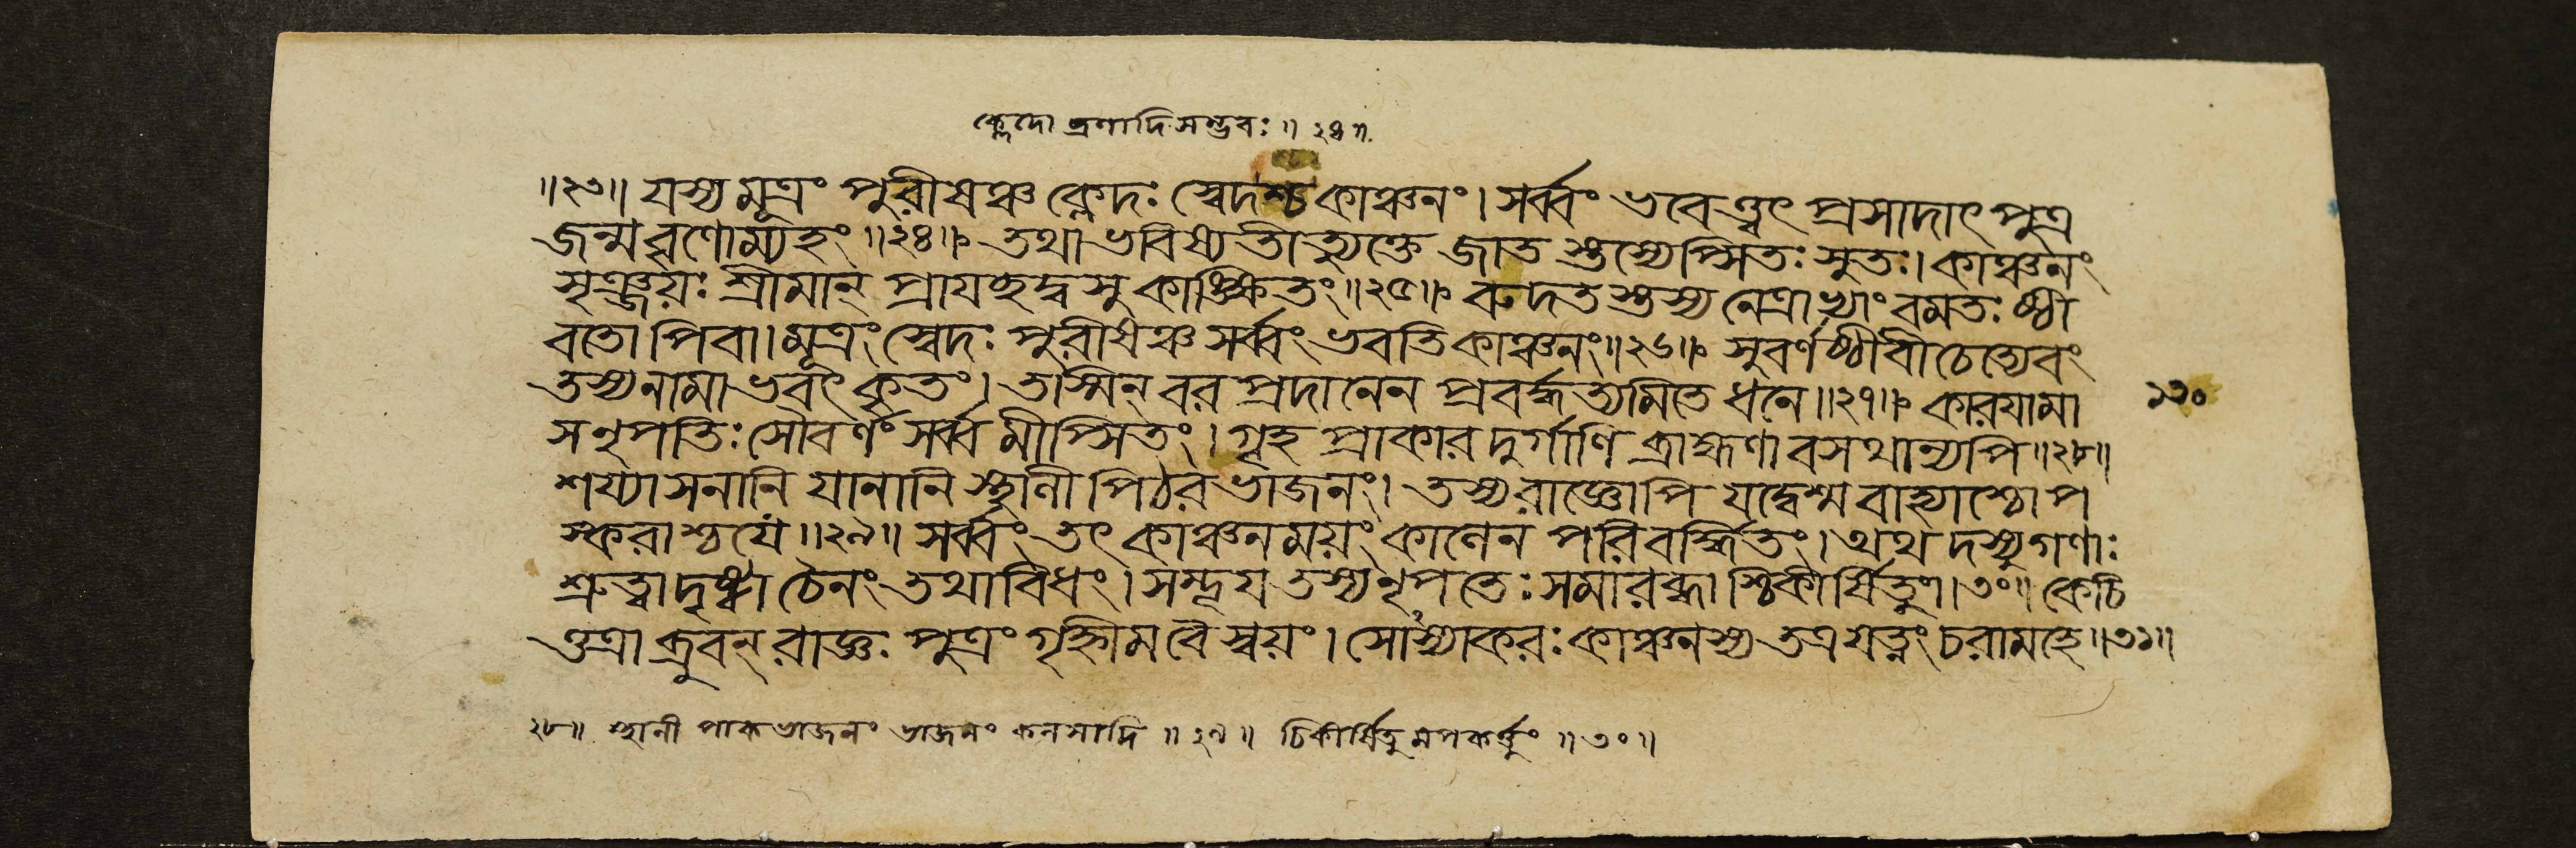 ক্লেদো ব্রণাদিসম্ভবঃ ॥ ২৪ ॥
॥২৩॥ যস্য মূত্রং পুরীষঞ্চ ক্লেদঃ স্বেদশ্চ কাঞ্চনং। সর্ব্বং ভবেত্ত্বৎ প্রসাদাৎ পুত্র
জন্ম বৃণোম্যহং॥২৪॥ তথা ভবিষ্যতীত্যুক্তে জাতস্তস্যেপ্সিতঃ সুতঃ। কাঞ্চনং
সৃঞ্জয়ঃ শ্রীমান্ প্রাযচ্ছদ্বসু কাঙ্ক্ষিতং॥২৫॥ রুদতস্তস্য নেত্রাভ্যাং বমতঃ ষ্ঠী
বতোপি বা। মূত্রং স্বেদঃ পুরীষঞ্চ সর্ব্বং ভবতি কাঞ্চনং॥২৬॥ সুবর্ণষ্ঠীবীতেত্যেবং
তস্য নামাভবৎ কৃতং। তস্মিন্ বর প্রদানেন প্রবর্দ্ধত্যমিতে ধনে॥২৭॥ কারযামা
স নৃপতিঃ সৌবর্ণং সর্ব্বমীপ্সিতং। গৃহ প্রাকার দুর্গাণি ব্রাহ্মণাবসথান্যপি॥২৮॥
শয্যাসনানি যানানি স্থালী পিঠর ভাজনং। তস্য রাজ্ঞোপি যদ্বেশ্ম বাহ্যাশ্চোপ
স্করাশ্চ যে॥২৯॥ সর্ব্বং তৎ কাঞ্চনময়ং কালেন পরিবর্দ্ধিতং। অথ দস্যুগণাঃ
শ্রুত্বা দৃষ্ট্বা চৈনং তথাবিধং। সম্ভূয তস্য নৃপতেঃ সমারব্ধাশ্চিকীর্ষিতুং।৩০॥ কেচি
ত্তত্রাব্রুবন্ রাজ্ঞঃ পুত্রং গৃহ্ণীম বৈ স্বয়ং। সোস্যাকরঃ কাঞ্চনস্য তত্র যত্নং চরামহে॥৩১॥
১৩০
২৮॥ স্থালী পাকভাজনং ভাজনং কলসাদি ॥ ২৯ ॥ চিকীর্ষিতুমপকর্ত্তুং ॥ ৩০ ॥